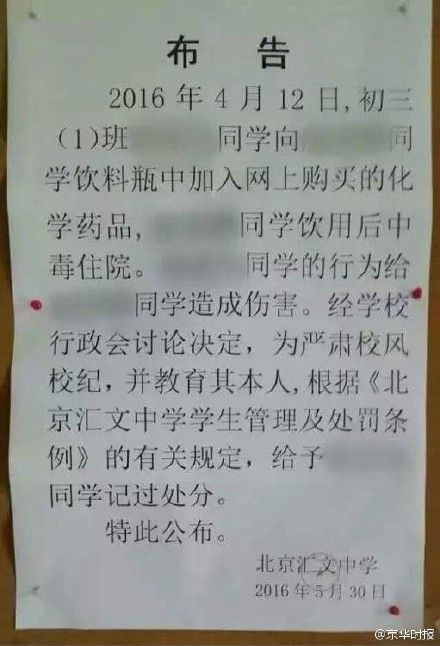 布告
2016年4月12日,初三
(1)班同学向同
学饮料瓶中加入网上购买的化
学药品,同学饮用后中
毒住院。同学的行为给
同学造成伤害。经学校
行政会讨论决定,为严肃校风
校纪,并教育其本人,根据《北
京汇文中学学生管理及处罚条
例》的有关规定,给予
同学记过处分。
特此公布。
北京汇文中学
2016年5月30日
@京华时报